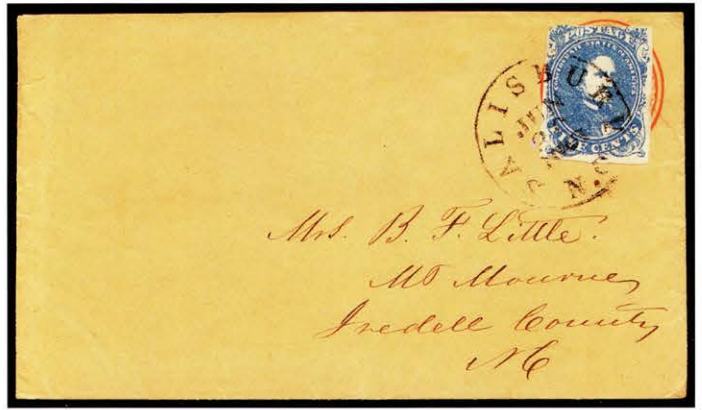 POSTAGE
FIVE CENTS
SALISBURY N.C.
Mrs. B. F. Little.
Mt Mourne,
Iredell County
NC